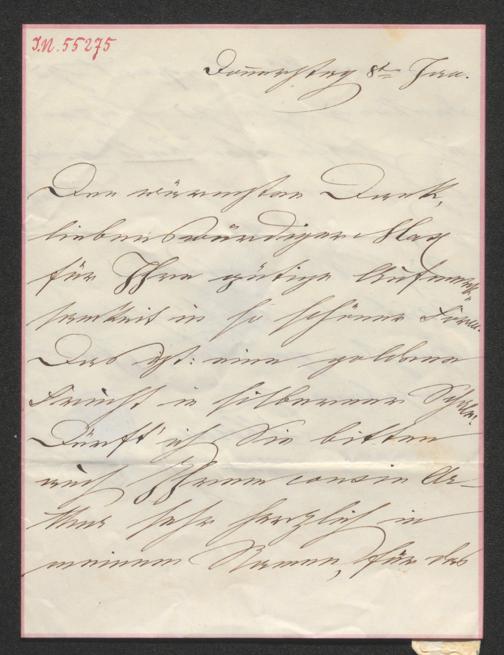 I.N. 55275
Donnerstag 8t Jan.
Den wärmsten Dank,
liebenswürdiger Max
für Ihre gütige Aufmerk-
samkeit in so schöner Form.
Das ist: eine goldene
Frucht in silberner Schale!
Dürft' ich Sie bitten
auch Ihrem cousin Ar-
thur sehr herzlich in
meinem Namen, für das